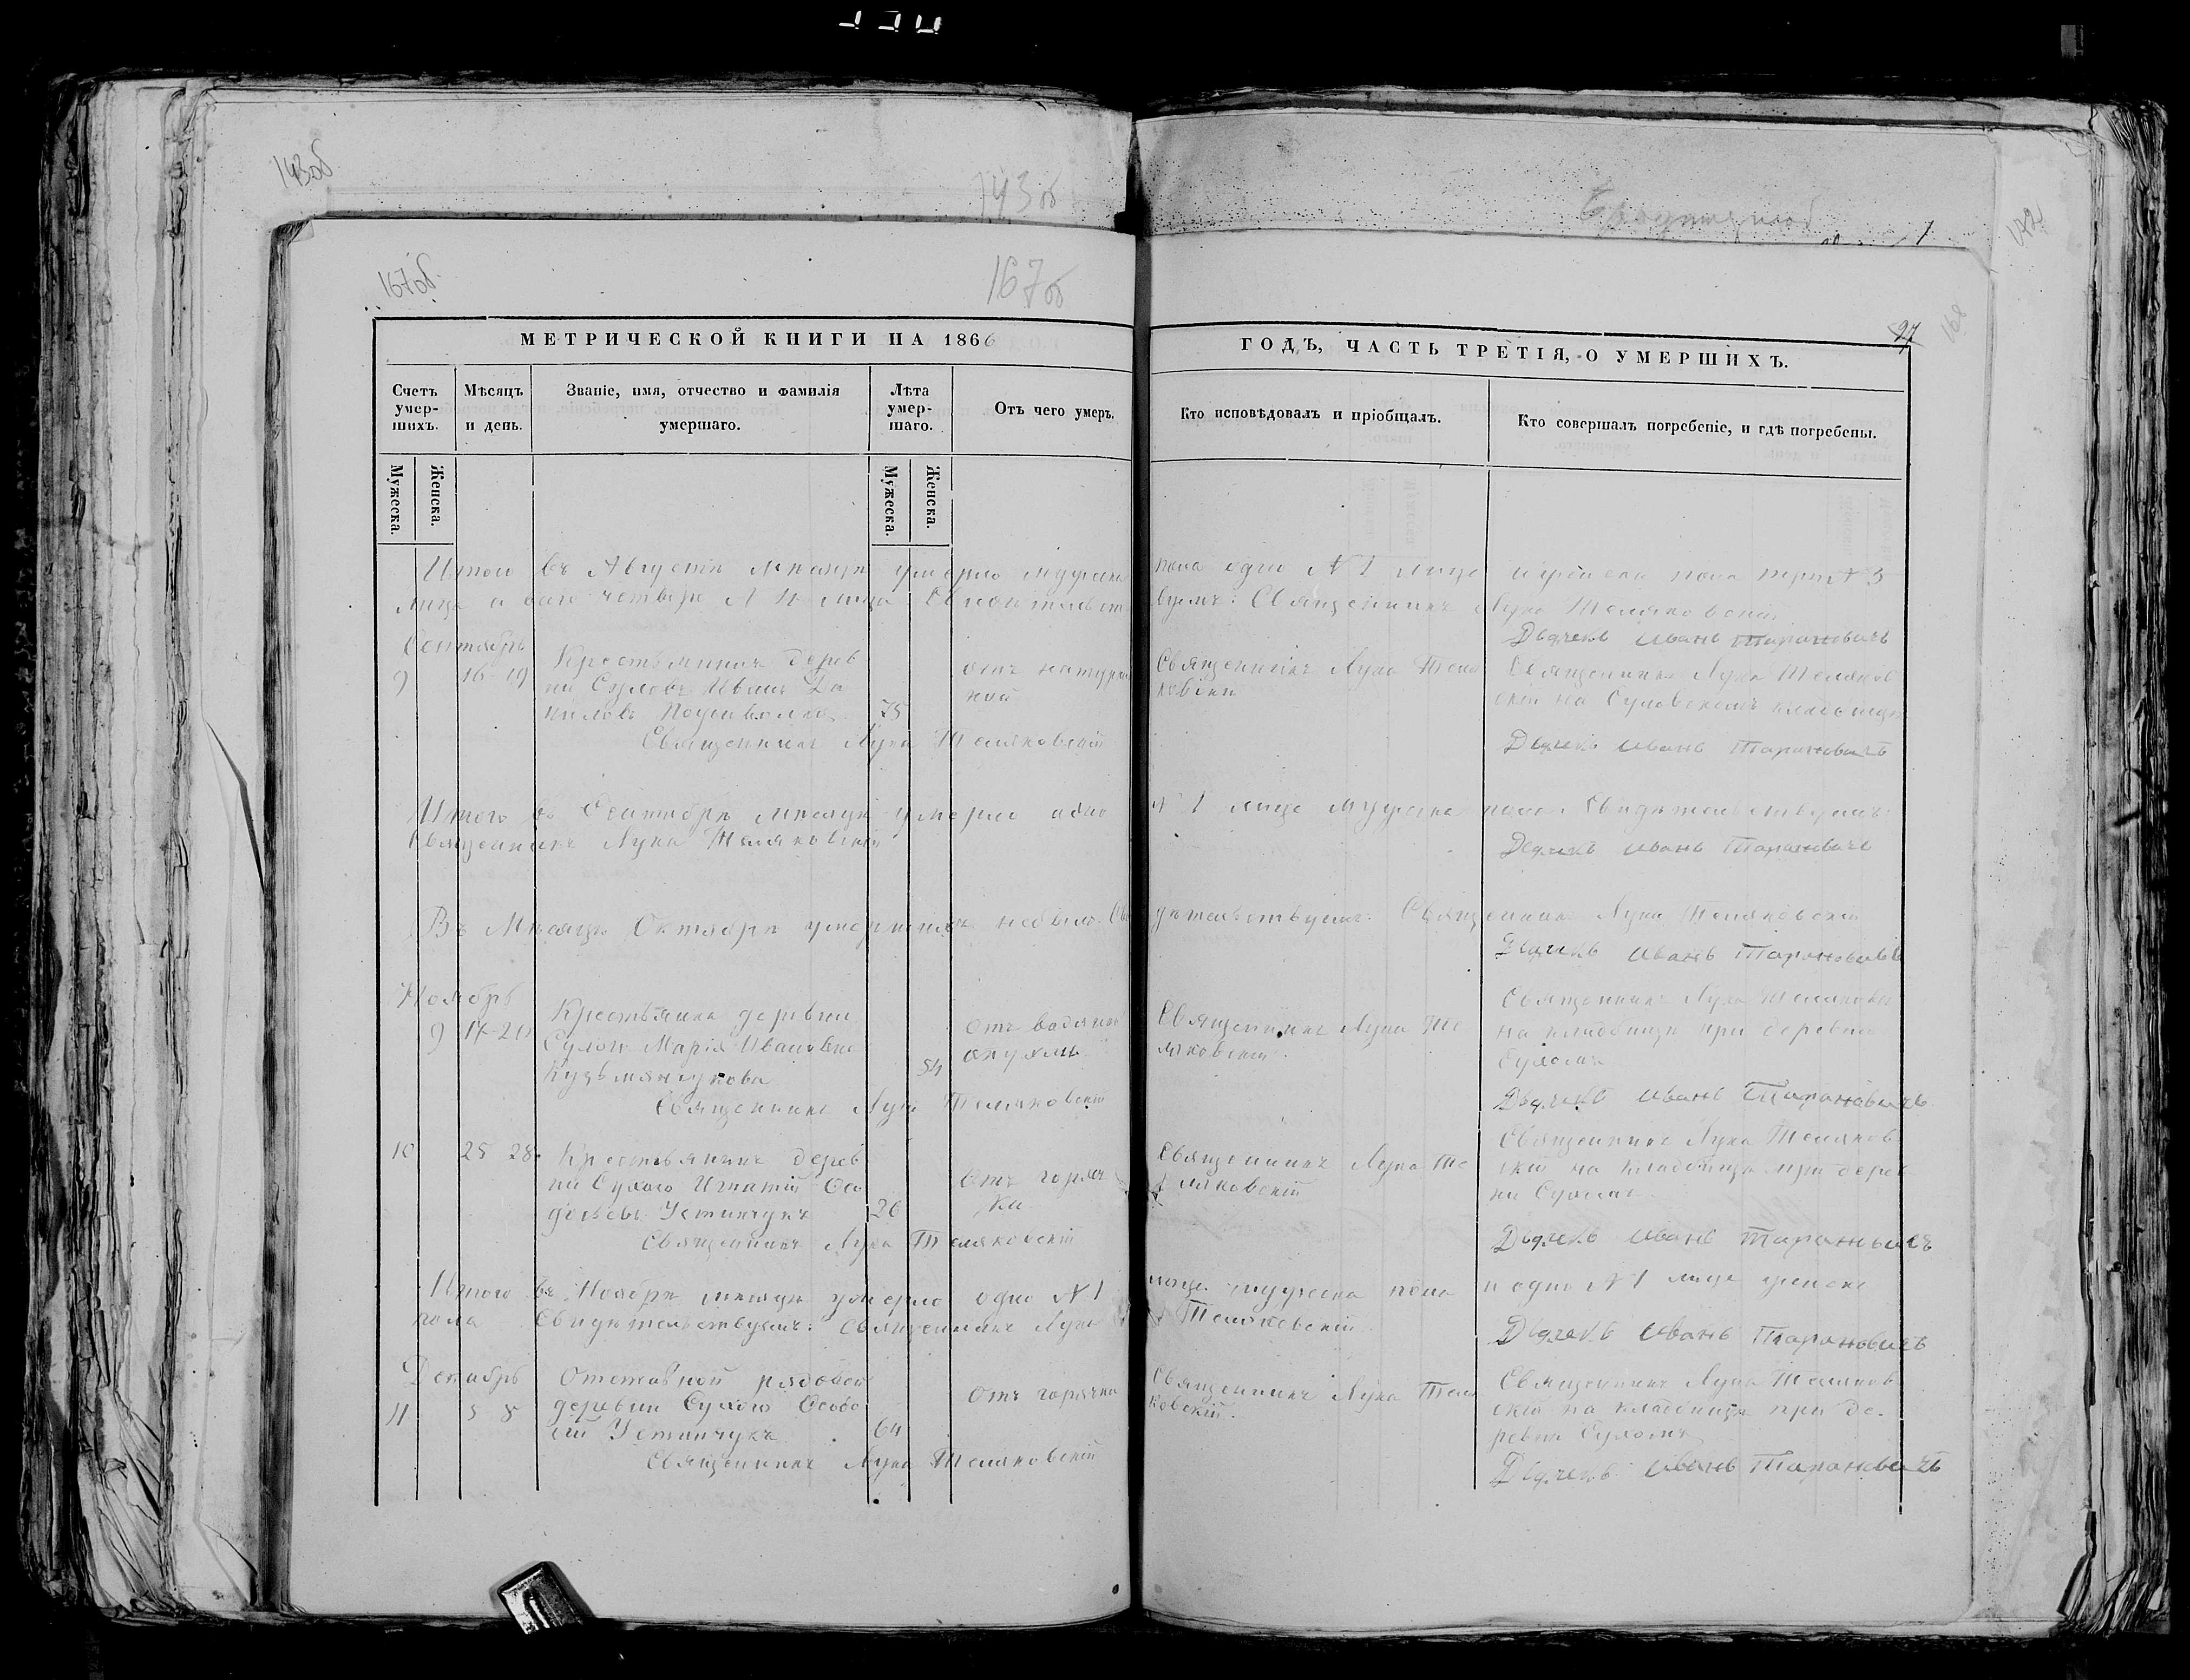 143об
143об
167об.
167об
97
168
МЕТРИЧЕСКОЙ КНИГИ НА 1866
ГОДЪ, ЧАСТЬ ТРЕТІЯ, О УМЕРШИХЪ.
Счетъ умер-шихъ.
Мѣсяцъ и день.
Званіе, имя, отчество и фамилія умершаго.
Лѣта умер-шаго.
Отъ чего умеръ.
Кто исповѣдовалъ и пріобщалъ.
Кто совершалъ погребеніе, и гдѣ погребены.
Мужеска.
Женска.
Мужеска.
Женска.
Итого въ Августѣ мѣсяцѣ умерло мужеска
пола одно № 1 лице и женска пола три № 3
лица а всего четыре № 4 лица
Священникъ Лука Теляковскій
Дьячекъ Иванъ Тарановичъ
Сентябрь
9
16-19
Крестьянинъ дерев
ни Иванъ Да
ниловъ
75
отъ натураль
ной
Священникъ Лука Теля
ковскій
Священникъ Лука Теляков
скій на кладбищѣ
Священникъ Лука Теляковскій
Дьячекъ Иванъ Тарановичъ
Итого въ Сентябрѣ мѣсяцѣ умерло одно
№ 1 лице мужеска пола. Свидѣтельствуемъ:
Священникъ Лука Теляковскій
Дьячекъ Иванъ Тарановичъ
Въ Мѣсяцѣ Октябрѣ умершихъ небыло. Сви
дѣтельствуемъ: Священникъ Лука Теляковскій
Дьячекъ Иванъ Тарановичъ
Ноябрь
9
17-20
Крестьянка деревни
Сухого Марія Ивановна
Кузьмянчукова
54
отъ водяной
опухоли
Священникъ Лука Те
ляковскій.
Священникъ Лука Теляковскій
на кладбищѣ при деревнѣ
Сухомъ
Священникъ Лука Теляковскій
Дьячекъ Иванъ Тарановичъ
10
25 28
Крестьянинъ дерев
ни Сухого Игнатій Фео
Устимчукъ
26
Отъ горяч
ки
Священникъ Лука Те
ляковскій
Священникъ Лука Теляков
скій на кладбищѣ при дерев
ни Сухомъ
Священникъ Лука Теляковскій
Дьячекъ Иванъ Тарановичъ
Итого въ Ноябрѣ мѣсяцѣ умерло одно № 1
лице мужеска пола и одно № 1 лице женска
пола Свидѣтельствуемъ: Священникъ Лука
Теляковскій
Дьячекъ Иванъ Тарановичъ
Декабрь
11
5 8
Отставной рядовой
деревни Сухого
Устимчукъ
64
Отъ горячки
Священникъ Лука Теля
ковскій.
Священникъ Лука Теляков
скій на кладбищѣ при де-
ревни Сухомъ
Священникъ Лука Теляковскій
Дьячекъ Иванъ Тарановичъ